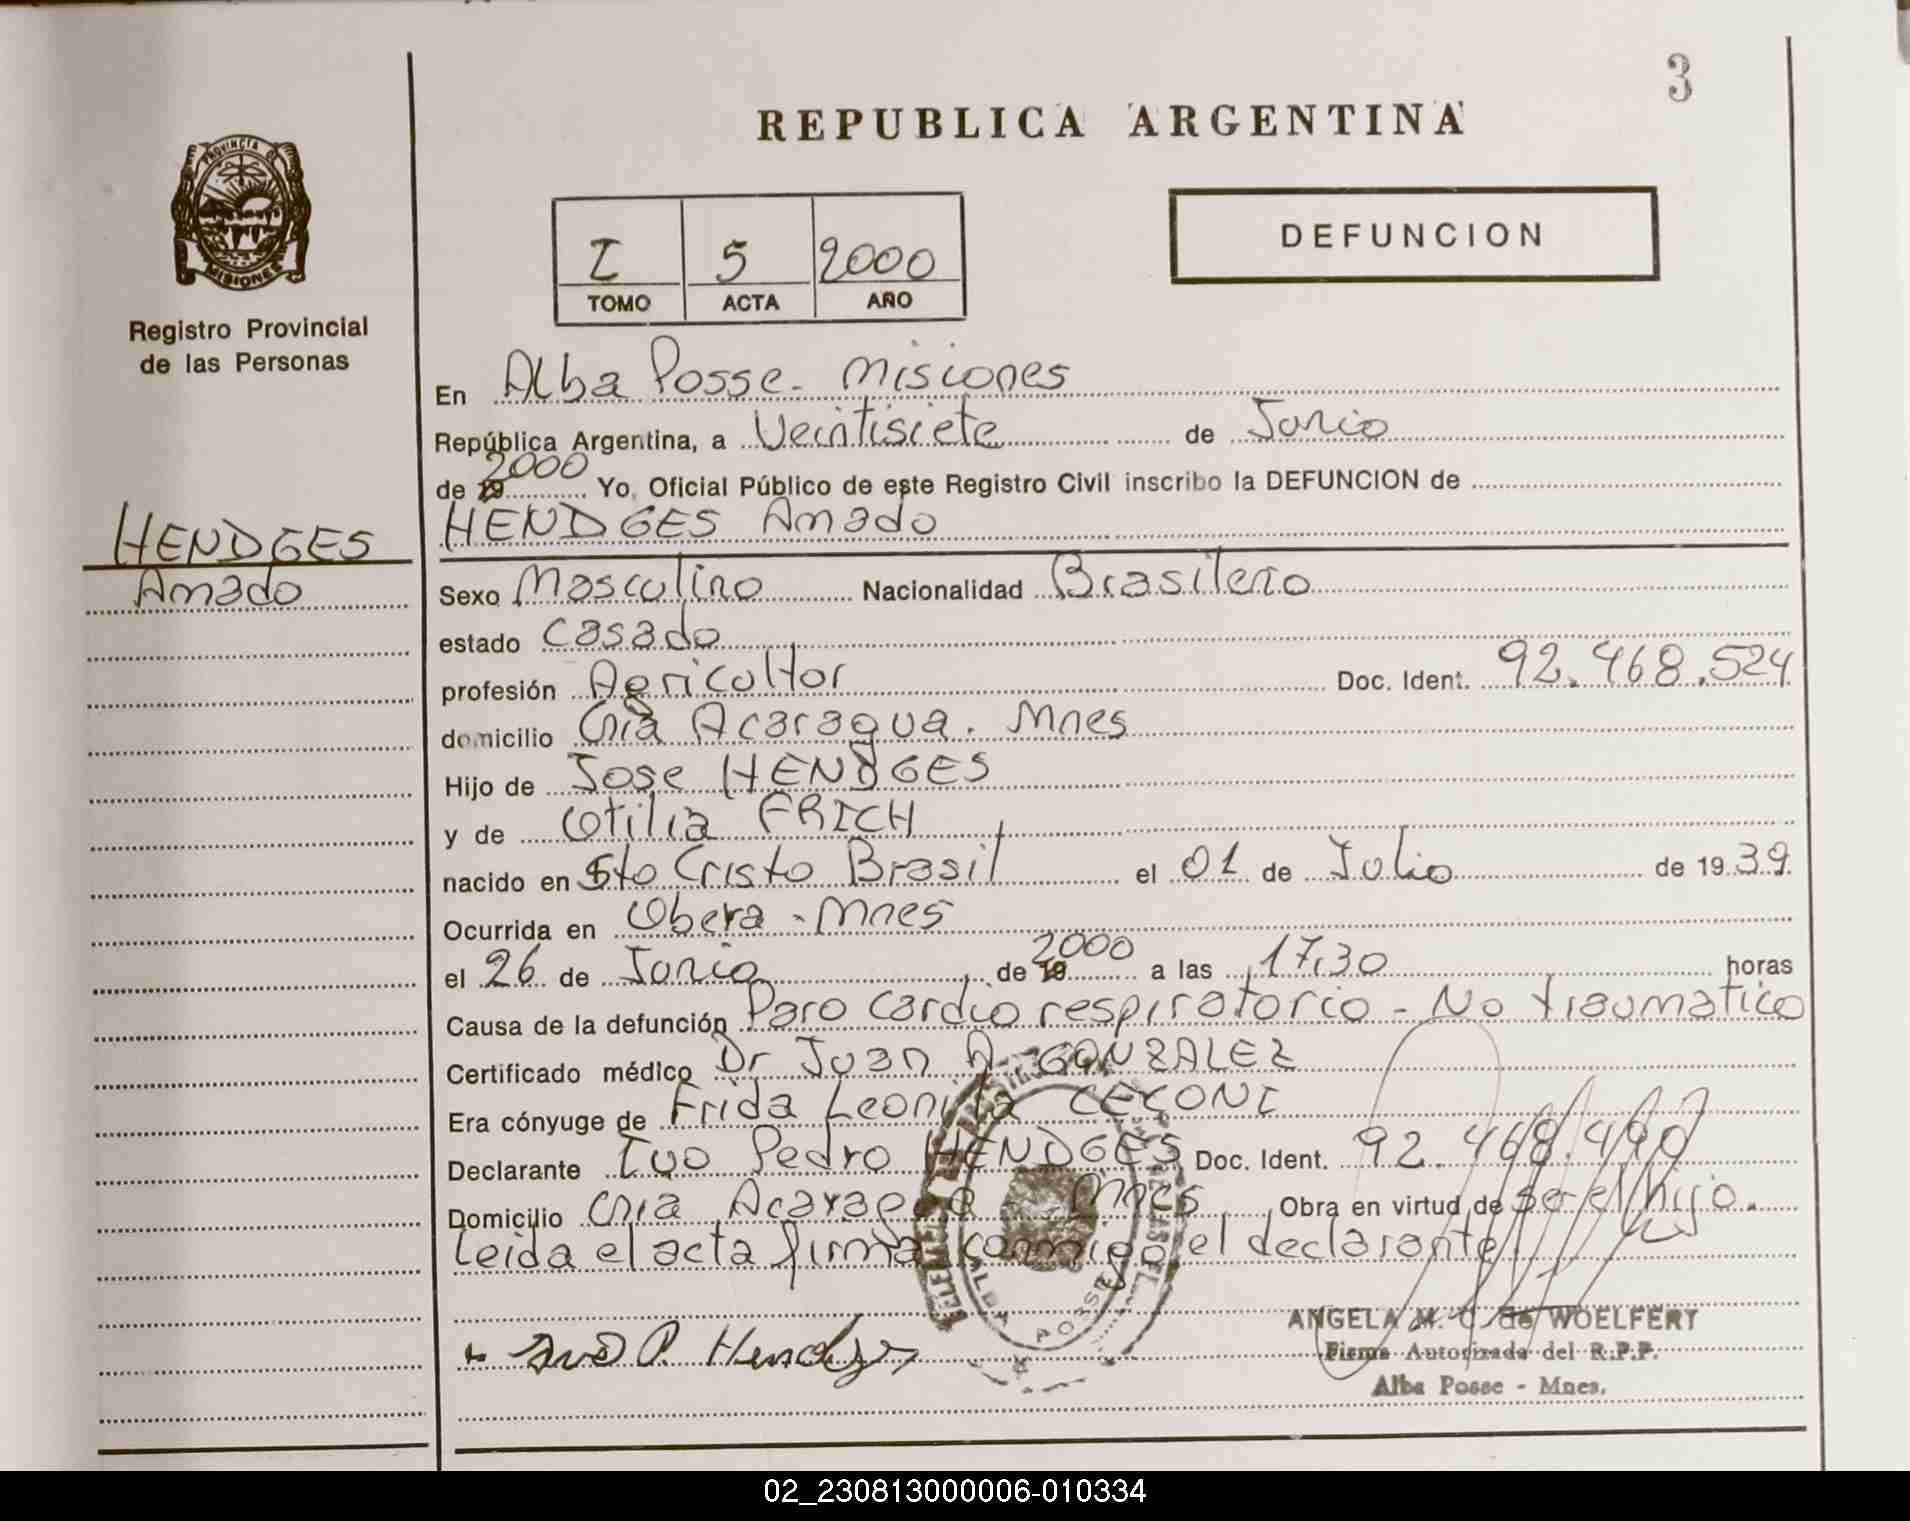 3
REPUBLICA ARGENTINA
PROVINCIA DE
MISIONES
Registro Provincial
de las Personas
DEFUNCION
I 5 2000
TOMO ACTA AÑO
En Alba Posse - Misiones
República Argentina, a Veintisiete de Junio
de 19 2000 Yo, Oficial Público de este Registro Civil inscribo la DEFUNCION de
HENDGES Amado
HENDGES
Amado
Sexo Masculino Nacionalidad Brasilero
estado Casado
profesión Agricultor Doc. Ident. 92.468.524
domicilio Cnia Acaragua. Mnes
Hijo de Jose HENDGES
y de Otilia FRICH
nacido en Sto Cristo Brasil el 01 de Julio de 1939.
Ocurrida en Obera - Mnes
el 26 de Junio de 19 2000 a las 17,30 horas
Causa de la defunción Paro cardio respiratorio - No traumatico
Certificado médico Dr Juan A. GONZALEZ
Era cónyuge de Frida Leonilda CECONI
Declarante Ivo Pedro HENDGES Doc. Ident. 92.468.490
Domicilio Cnia Acaragua Mnes Obra en virtud de ser el hijo.
Leida el acta firma conmigo el declarante.
ALBA POSSE
Ivo P. Hendges
ANGELA M. C. de WOELFERT
Firma Autorizada del R.P.P.
Alba Posse - Mnes.
02_230813000006-010334